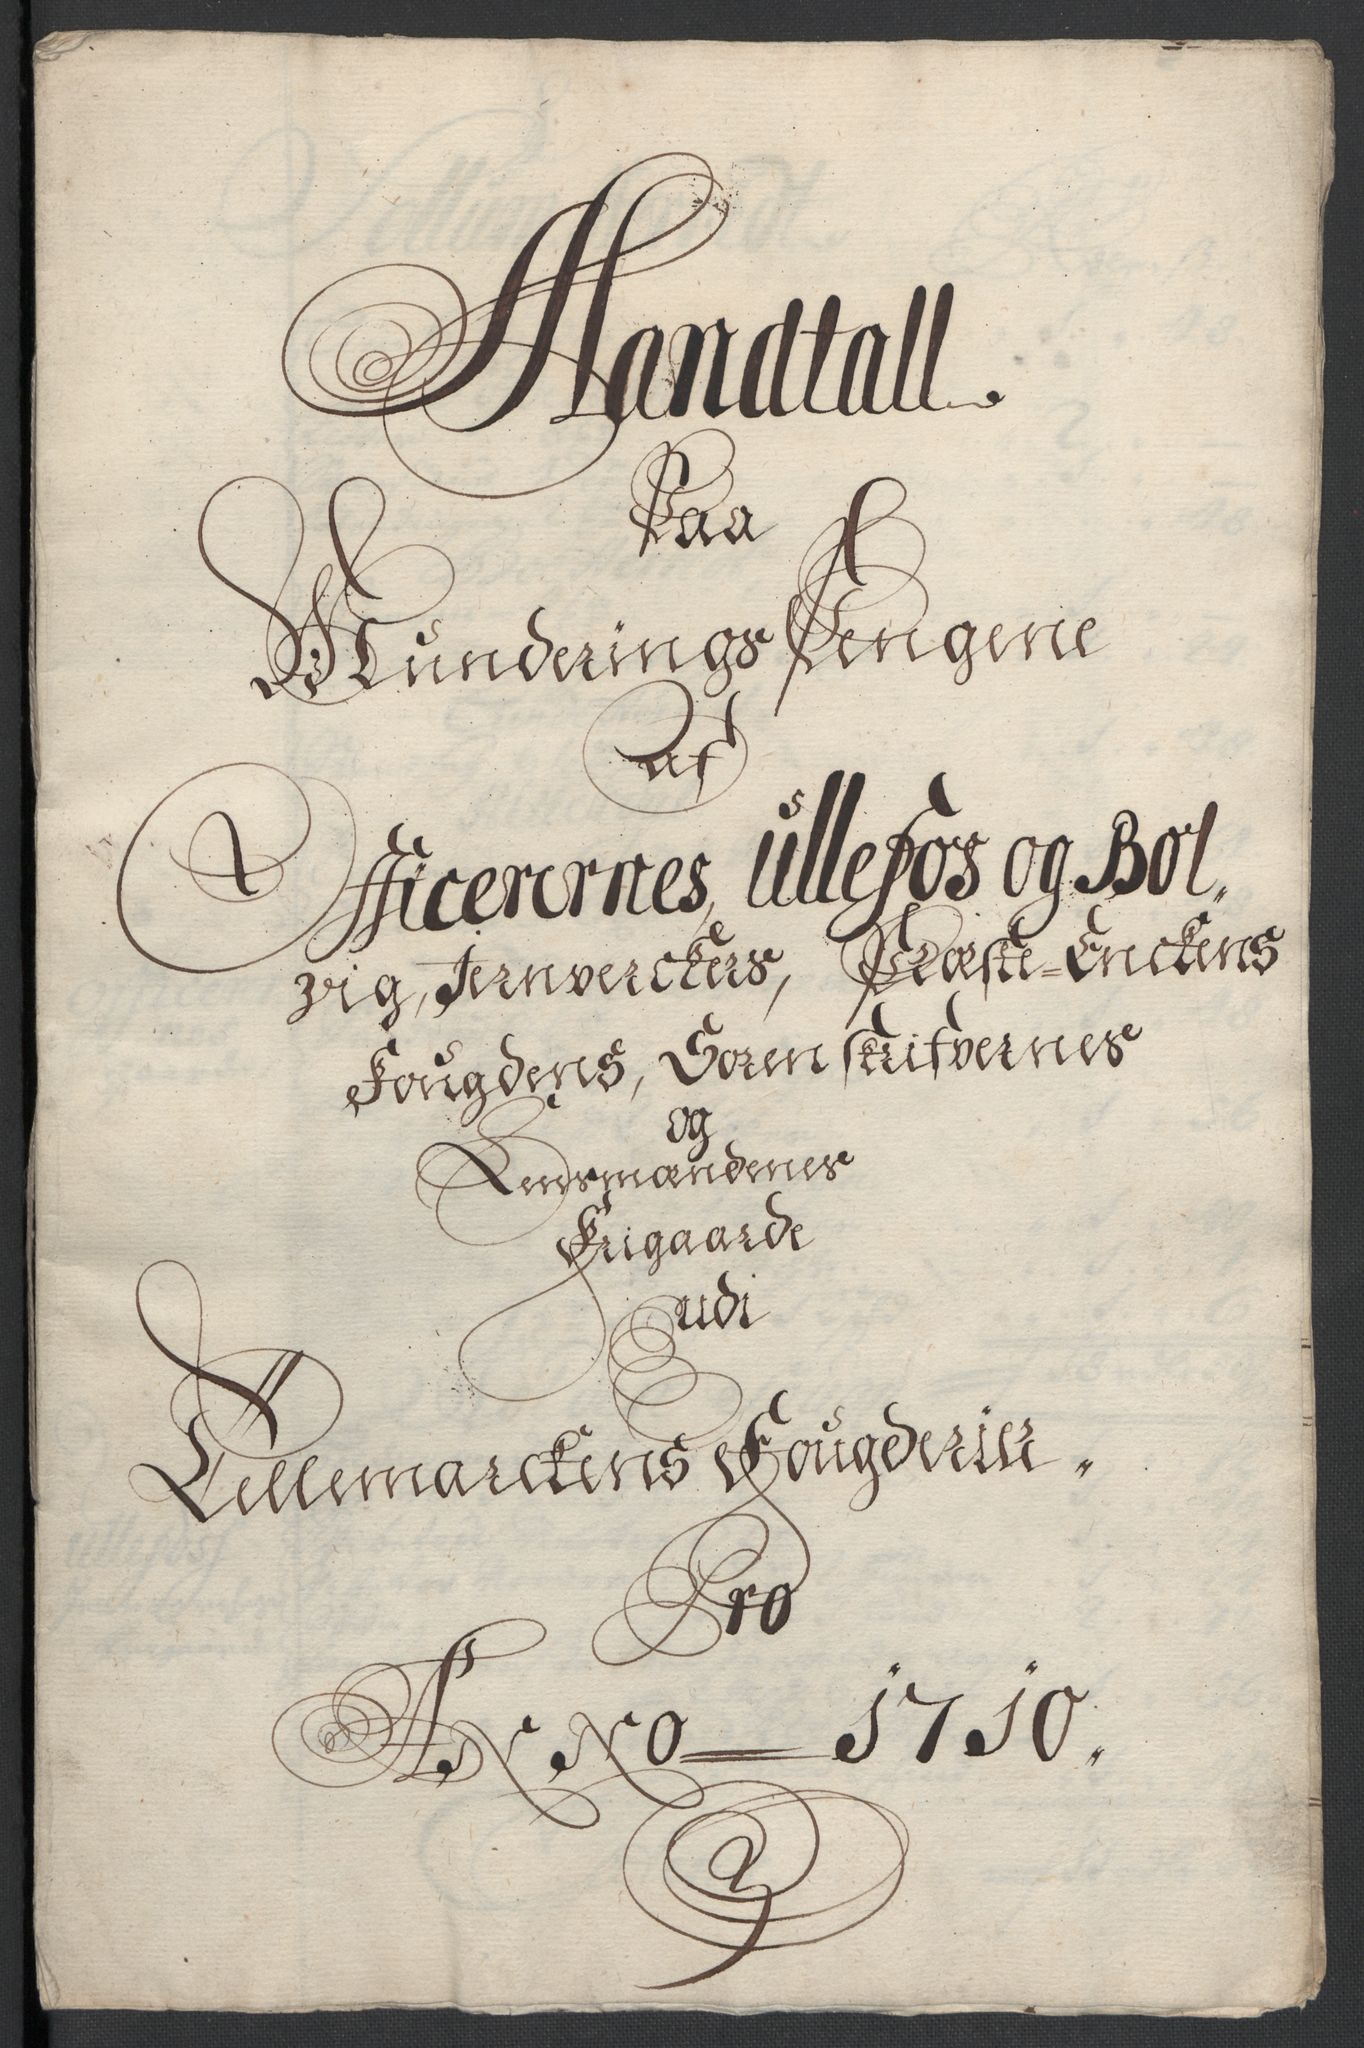 Mandtall
Paa
Munderings Pengene
af
Officerernes, Ullefos og Bol„
vig, Jernverckers, Præste=Enckens
Fougdens, Sorenskrifvernes
og
Lensmændenes
Frigaarde
udi
Tellemarckens Fougderie„
Pro
ANNO 1710„